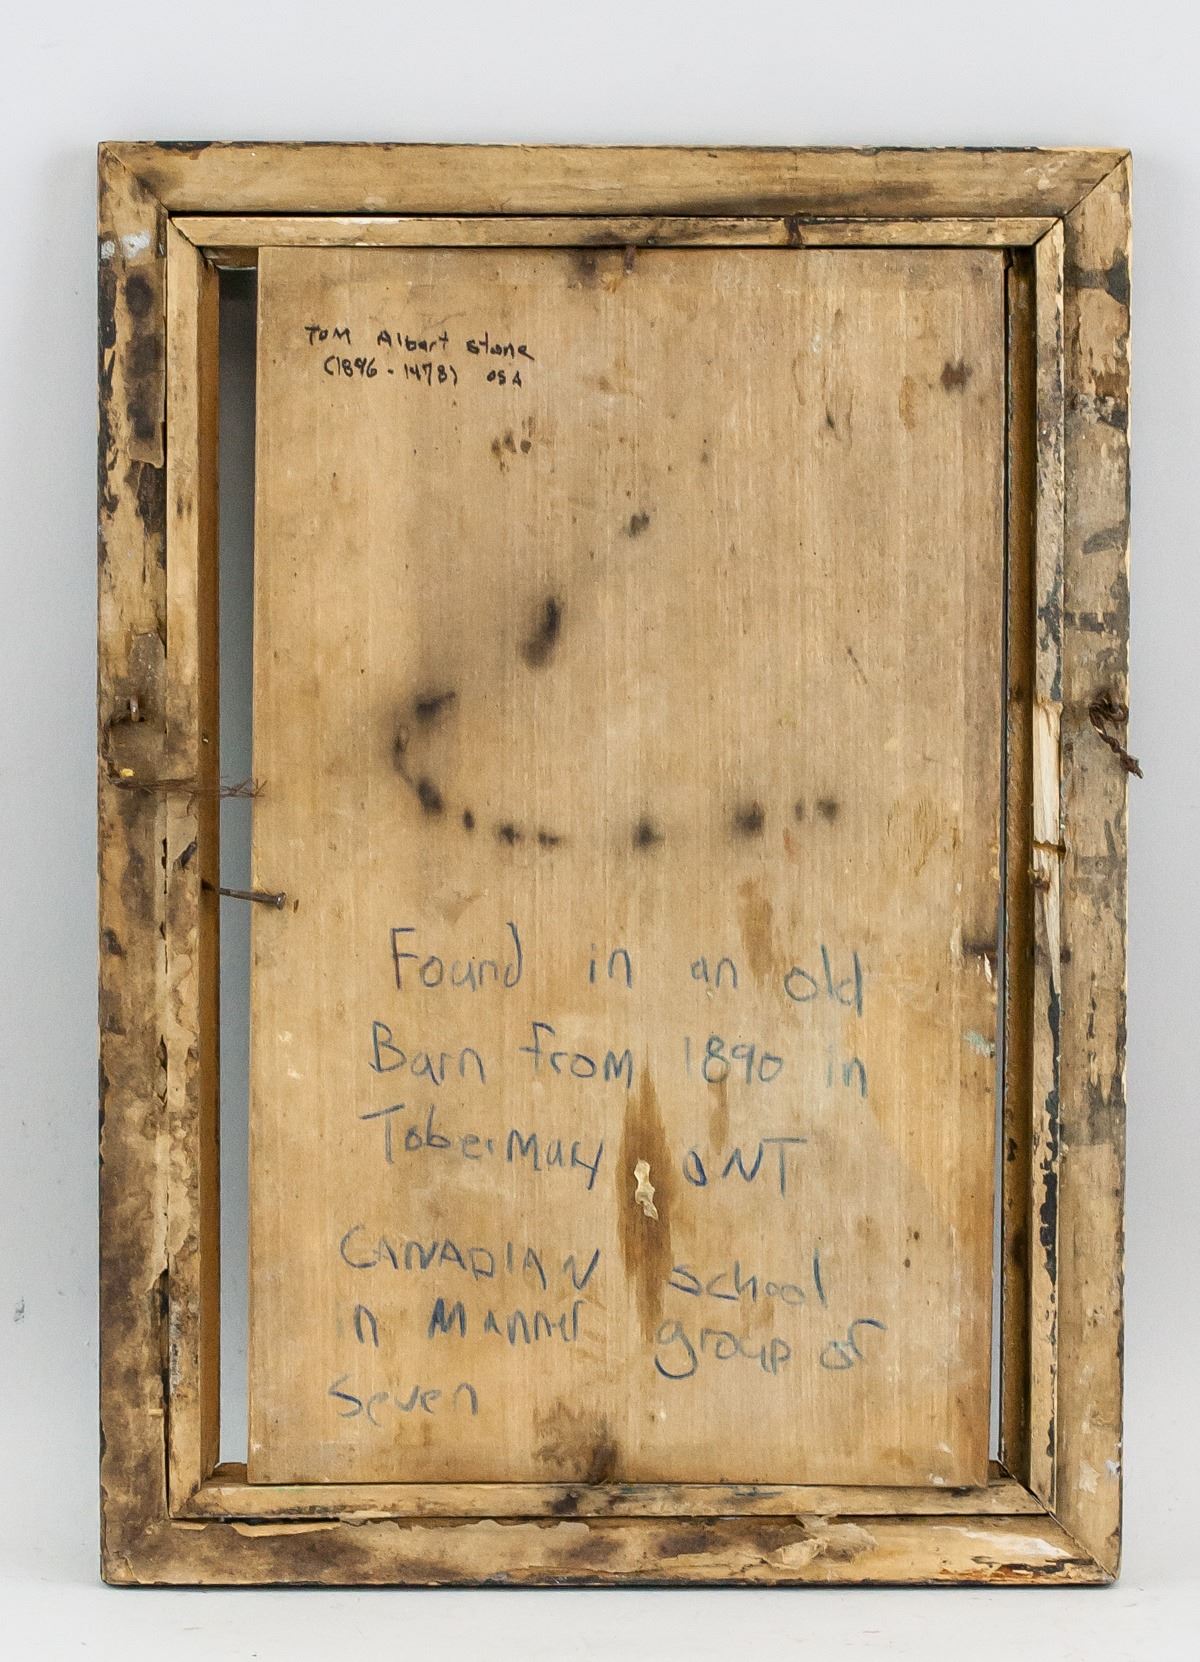 TOM Albert stone
(1896 - 1978) OSA
Found in an old
Barn from 1890 in
Tobermury ONT
CANADIAN school
in Manner group of
Seven